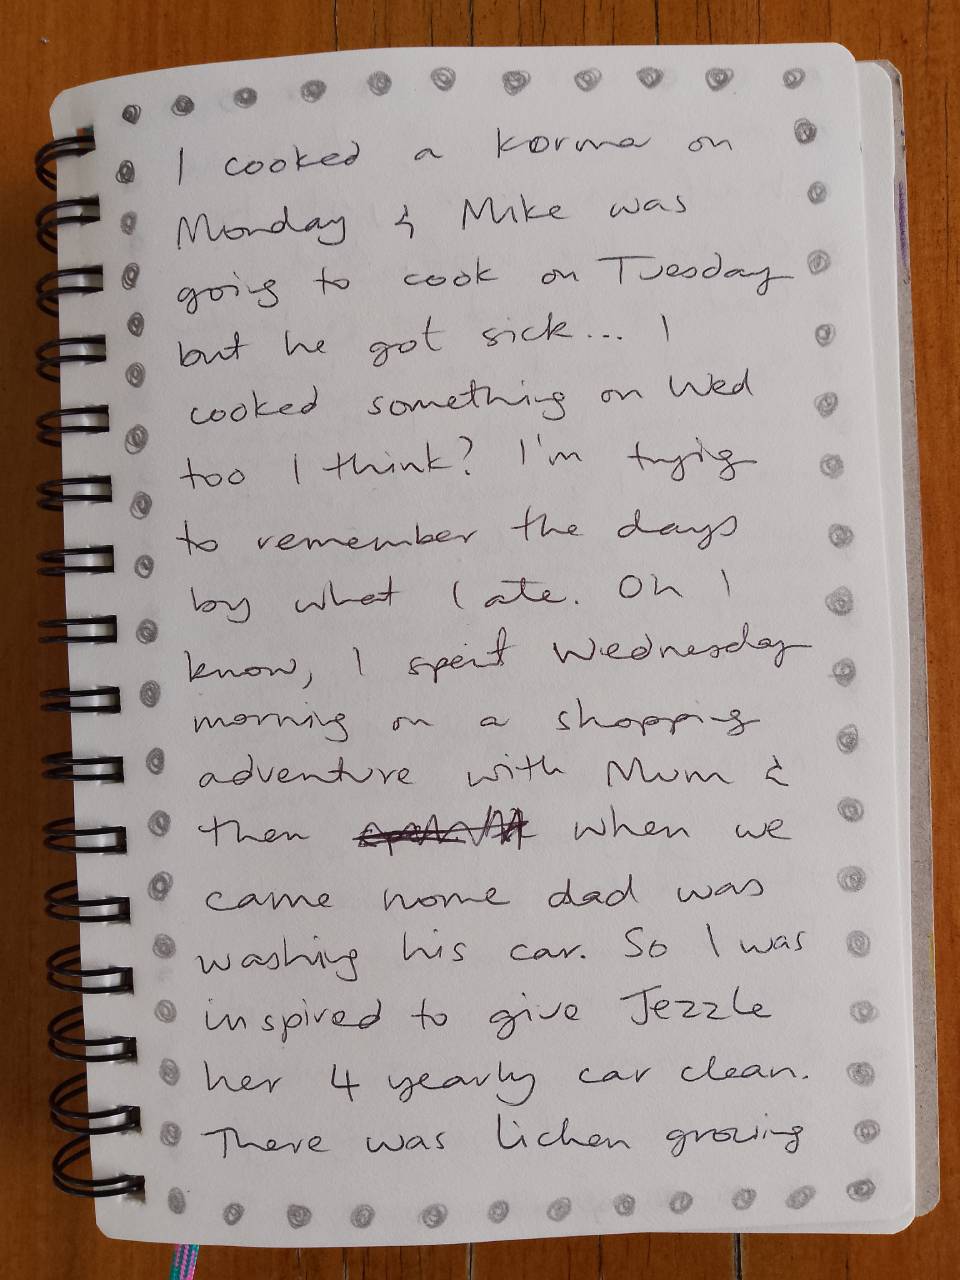 I cooked a korma on
Monday & Mike was
going to cook on Tuesday
but he got sick... I
cooked something on Wed
too I think? I'm trying
to remember the days
by what I ate. Oh I
know, I spent Wednesday
morning on a shopping
adventure with Mum &
then when we
came home dad was
washing his car. So I was
inspired to give Jezzle
her 4 yearly car clean.
There was lichen growing